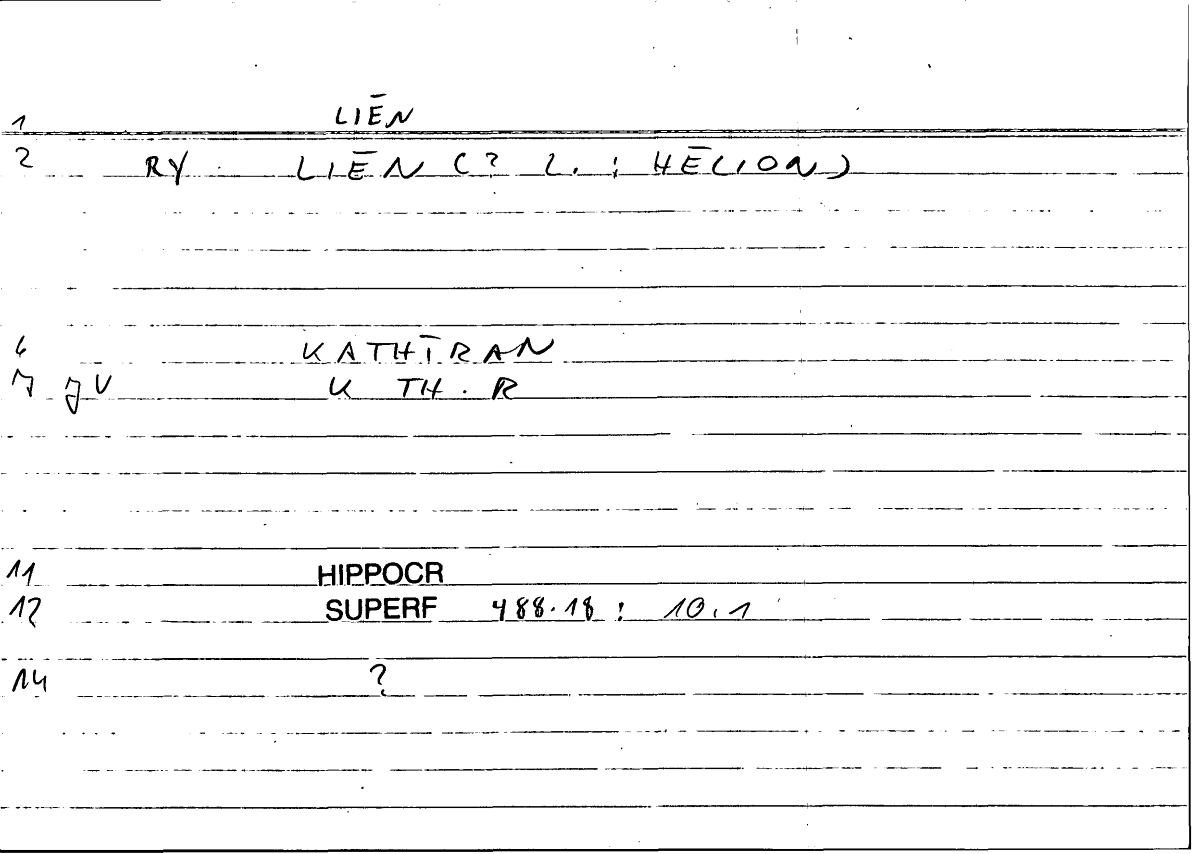 1 LIĒN
2 RY LIĒN (? L. : HĒLION)
6 KATHĪRAN
7 JV K TH . R
11 HIPPOCR
12 SUPERF 488.18 : 10.1
14 ?